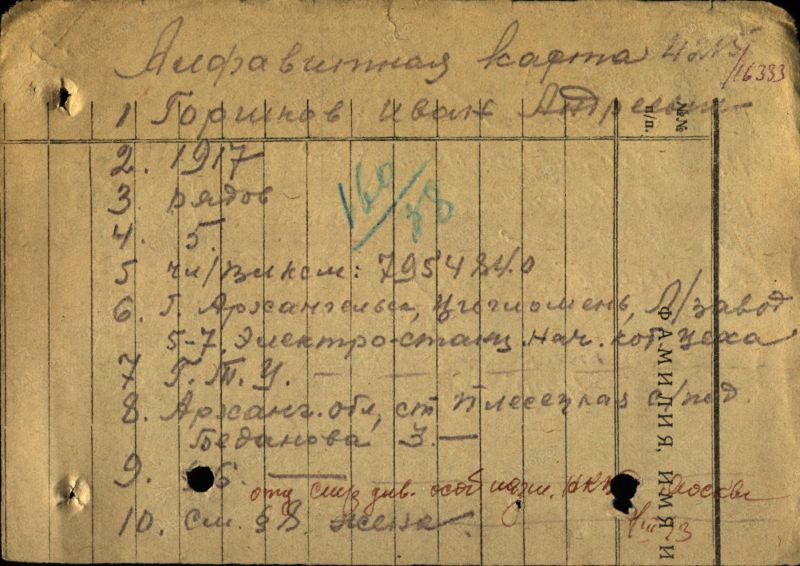 Алфавитная карта 4215/16333
1 Горшков Иван Андреевич
2. 1917
3 рядов
160/38
4. 5.
5 чл/влксм: 7954840
6. г. Архангельск, Цигломень, Л/завод
5-7. Электро-станц. нач. кот. цеха
7 Г.Т.У. —
8. Арханг. обл, ст Плесецкая с/пед.
Беданова З. —
9. §6. —
отд див. особ назн. НКВД Москва
10. см. §8. жена.
№№ п/п.
ФАМИЛИЯ, ИМЯ И